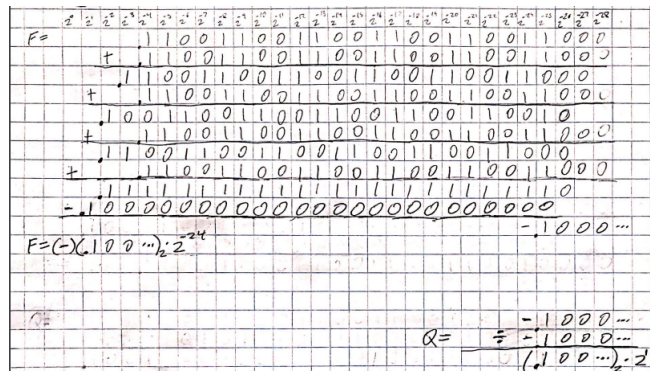 2^0 2^-1 2^-2 2^-3 2^-4 2^-5 2^-6 2^-7 2^-8 2^-9 2^-10 2^-11 2^-12 2^-13 2^-14 2^-15 2^-16 2^-17 2^-18 2^-19 2^-20 2^-21 2^-22 2^-23 2^-24 2^-25 2^-26 2^-27 2^-28
F= .1 1 0 0 1 1 0 0 1 1 0 0 1 1 0 0 1 1 0 0 1 1 0 0 0
+ .1 1 0 0 1 1 0 0 1 1 0 0 1 1 0 0 1 1 0 0 1 1 0 0 0
.1 1 0 0 1 1 0 0 1 1 0 0 1 1 0 0 1 1 0 0 1 1 0 0 0
+ .1 1 0 0 1 1 0 0 1 1 0 0 1 1 0 0 1 1 0 0 1 1 0 0 0
.1 0 0 1 1 0 0 1 1 0 0 1 1 0 0 1 1 0 0 1 1 0 0 1 0
+ .1 1 0 0 1 1 0 0 1 1 0 0 1 1 0 0 1 1 0 0 1 1 0 0 0
.1 1 0 0 1 1 0 0 1 1 0 0 1 1 0 0 1 1 0 0 1 1 0 0 0
+ .1 1 0 0 1 1 0 0 1 1 0 0 1 1 0 0 1 1 0 0 1 1 0 0 0
.1 1 1 1 1 1 1 1 1 1 1 1 1 1 1 1 1 1 1 1 1 1 1 1 0
- .1 0 0 0 0 0 0 0 0 0 0 0 0 0 0 0 0 0 0 0 0 0 0 0
-.1 0 0 0 ...
F=(-)(.1 0 0 ...)₂·2^-24
-.1 0 0 0 ...
Q= ÷ -.1 0 0 0 ...
(.1 0 0 ...)₂·2^1